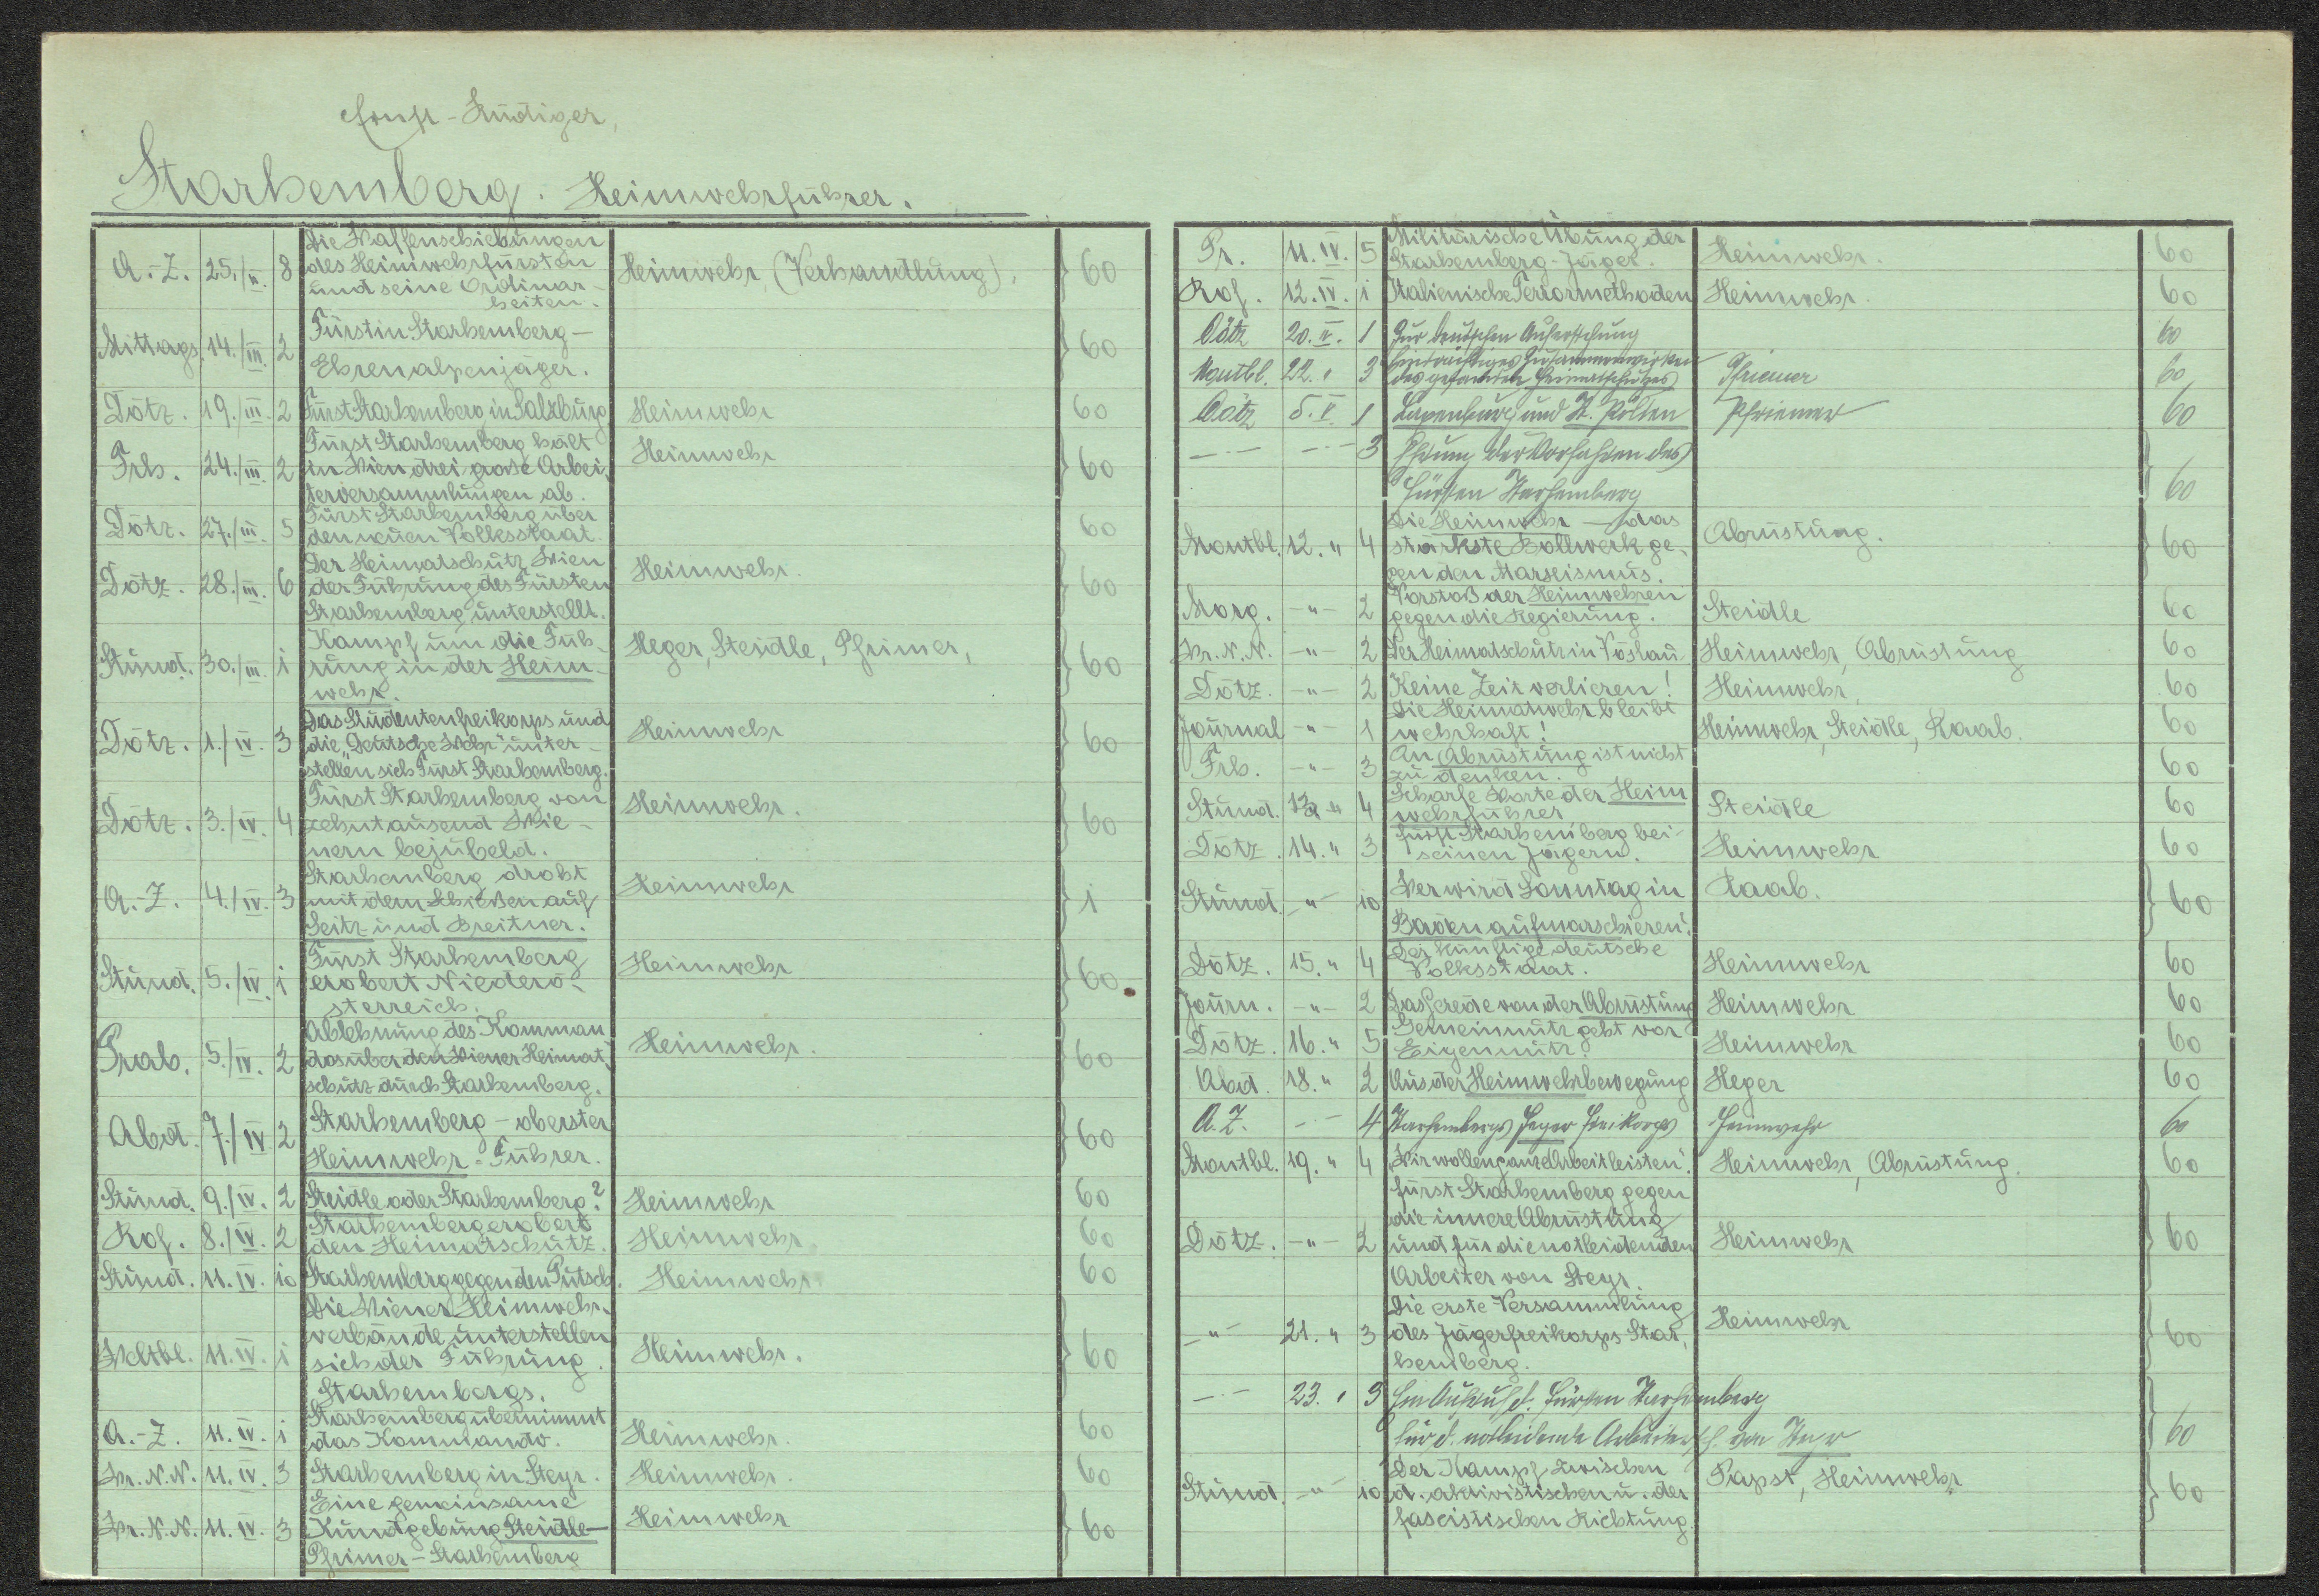 Ernst-Rüdiger,
Starhemberg. Heimwehrführer.
A.-Z. 25./II. 8 Die Waffenschiebungen
des Heimwehrfürsten
und seine Ordinär-
heiten. Heimwehr, (Verhandlung). 60
Mittags. 14./III. 2 Fürstin Starhemberg –
Ehrenalpenjäger. 60
Dötz. 19./III. 2 Fürst Starhemberg in Salzburg Heimwehr 60
Frh. 24./III. 2 Fürst Starhemberg hält
in Wien drei große Arbei-
terversammlungen ab. Heimwehr 60
Dötz. 27./III. 5 Fürst Starhemberg über
den neuen Volksstaat. 60
Dötz. 28./III. 6 Der Heimatschutz Wien
der Führung des Fürsten
Starhemberg unterstellt. Heimwehr. 60
Stund. 30./III. i Kampf um die Füh-
rung in der Heim-
wehr. Heger, Steidle, Pfrimer, 60
Dötz. 1./IV. 3 Das Studentenfreikorps und
die "Deutsche Wehr" unter-
stellen sich Fürst Starhemberg. Heimwehr 60
Dötz. 3./IV. 4 Fürst Starhemberg von
zehntausend Wie-
nern bejubeld. Heimwehr. 60
A.-Z. 4./IV. 3 Starhemberg droht
mit dem Schießen auf
Seitz und Breitner. Heimwehr 1
Stund. 5./IV. i Fürst Starhemberg
erobert Niederö-
sterreich. Heimwehr 60
Prab. 5./IV. 2 Ablehnung des Komman-
dos über den Wiener Heimat-
schutz durch Starhemberg. Heimwehr. 60
Abd. 7./IV 2 Starhemberg – oberster
Heimwehr-Führer. 60
Stund. 9./IV. 2 Steidle oder Starhemberg? Heimwehr 60
Rof. 8./IV. 2 Starhemberg erobert
den Heimatschutz. Heimwehr 60
Stund. 11. IV. 10 Starhemberg gegen den Putsch. Heimwehr 60
Weltbl. 11. IV. i Die Wiener Heimwehr-
verbände unterstellen
sich der Führung
Starhembergs. Heimwehr. 60
A.-Z. 11. IV. i Starhemberg übernimmt
das Kommando. Heimwehr. 60
Wr. N. N. 11. IV. 3 Starhemberg in Steyr. Heimwehr. 60
Wr. N. N. 11. IV. 3 Eine gemeinsame
Kundgebung Steidle –
Pfrimer – Starhemberg Heimwehr 60
Pr. 11. IV. 5 Militärische Übung der
Starhemberg-Jäger. Heimwehr. 60
Rof. 12. IV. i Italienische Terrormethoden Heimwehr. 60
Dötz 20. IV. 1 Zur deutschen Auferstehung 60
Montbl. 22. " 3 Einträchtiges Zusammenwirken
des gesamten Heimatschutzes Pfriemer 60
Dötz 5. V. 1 Laxenburg und St. Pölten Pfriemer 60
–"– –"– 3 Ehrung der Vorfahren des
Fürsten Starhemberg 60
Montbl. 12. " 4 Die Heimwehr – das
stärkste Bollwerk ge-
gen den Marxismus. Abrüstung. 60
Morg. –"– 2 Vorstoß der Heimwehren
gegen die Regierung. Steidle 60
Wr. N. N. –"– 2 Der Heimatschutz in Vöslau. Heimwehr, Abrüstung 60
Dötz. –"– 2 Keine Zeit verlieren! Heimwehr, 60
Journal –"– 1 Die Heimatwehr bleibt
wehrhaft! Heimwehr, Steidle, Raab. 60
Frh. –"– 3 An Abrüstung ist nicht
zu denken. 60
Stund. 13. " 4 Scharfe Worte der Heim
wehrführer Steidle 60
Dötz. 14. " 3 Fürst Starhemberg bei
seinen Jägern. Heimwehr 60
Stund. –"– 10 Wer wird Sonntag in
Baden aufmarschieren? Raab. 60
Dötz. 15. " 4 Der künftige deutsche
Volksstaat. Heimwehr 60
Journ. –"– 2 Das Gerede von der Abrüstung Heimwehr 60
Dötz. 16. " 5 Gemeinnutz geht vor
Eigennutz! Heimwehr 60
Abd. 18. " 2 Aus der Heimwehrbewegung Heger 60
A. Z. –"– 4 Starhembergs Jäger Freikorps Heimwehr 60
Montbl. 19. " 4 "Wir wollen ganze Arbeit leisten". Heimwehr, Abrüstung. 60
Dötz. –"– 2 Fürst Starhemberg gegen
die innere Abrüstung
und für die notleidenden
Arbeiter von Steyr. Heimwehr 60
–"– 21. " 3 Die erste Versammlung
des Jägerfreikorps Star-
hemberg. Heimwehr 60
–"– 23. " 3 Ein Aufruf d. Fürsten Starhemberg
für d. notleidende Arbeitersch. von Steyr 60
Stund. –"– 10 Der Kampf zwischen
d. aktivistischen u. der
fascistischen Richtung. Papst, Heimwehr 60